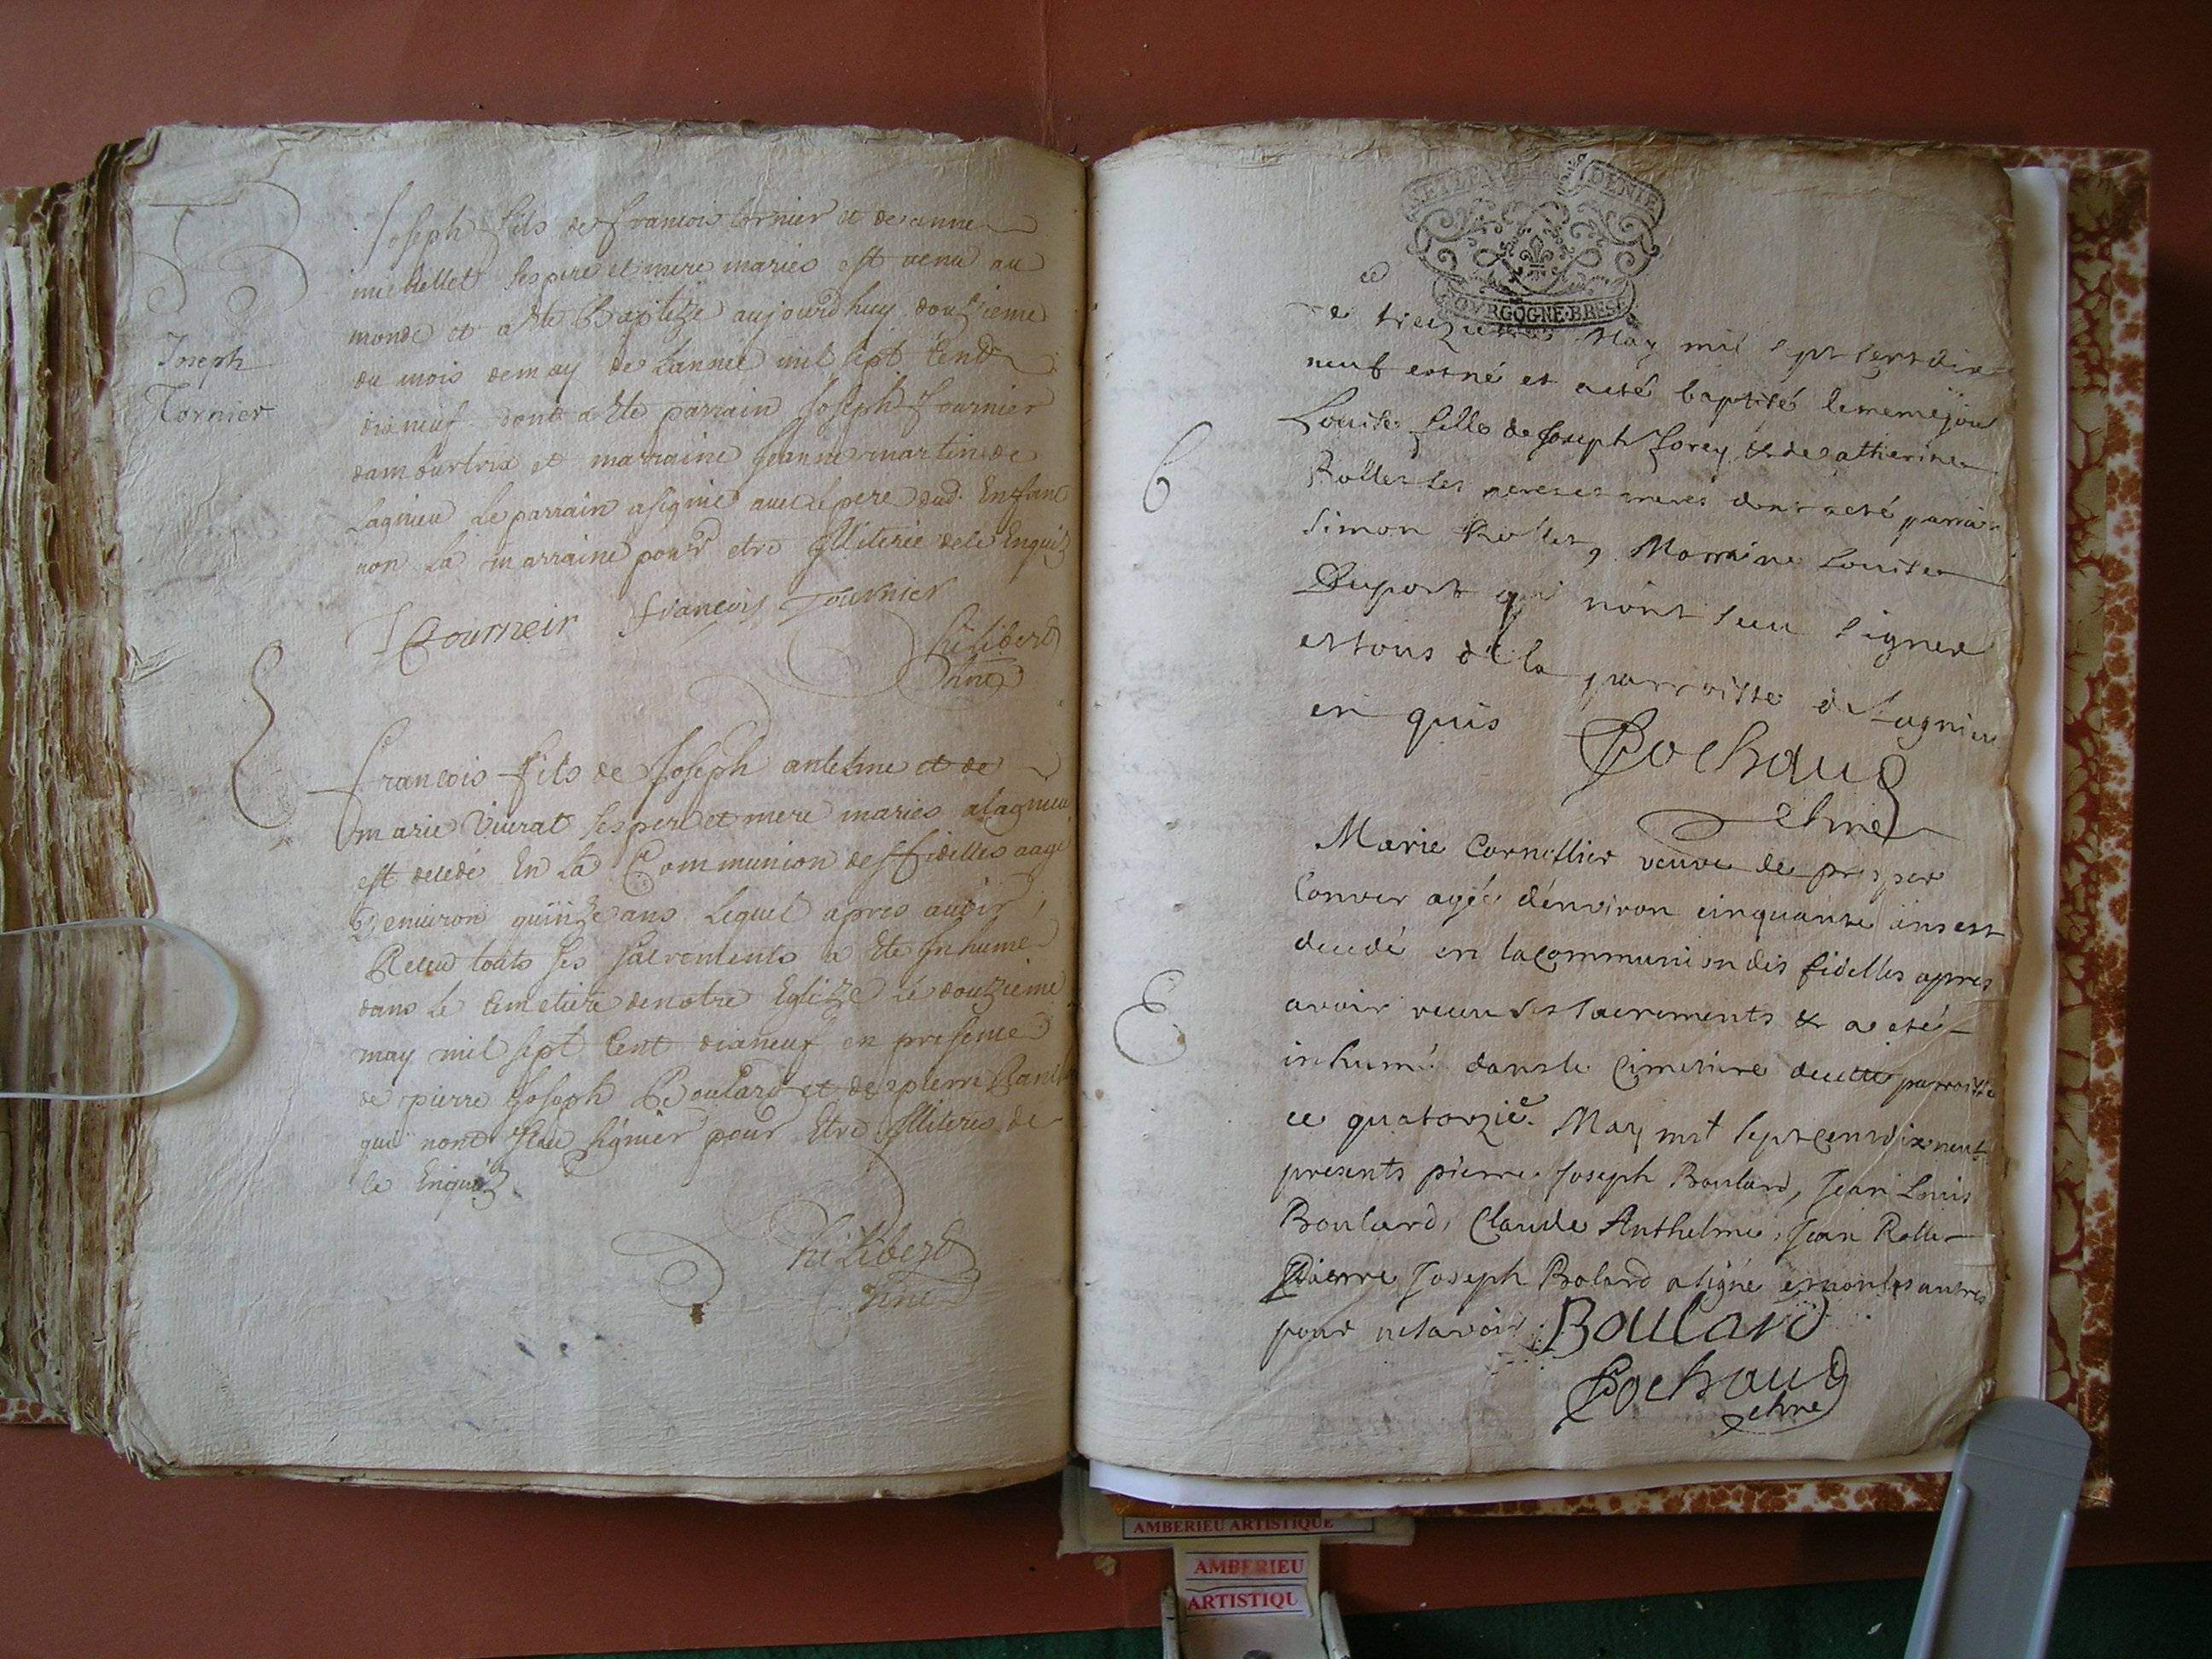 Joseph
Tornier
Joseph fils de francois tornier et de anne
michellet ses pere et mere mariés est venu au
monde et a ete Baptize aujourd huy douzieme
du mois de may de L'année mil sept Cent
dixneuf dont a ete parrain Joseph fournier
damburtrix et marraine Jeanne martin de
Lagnieu Le parrain a signé avec le pere dud. Enfant
non La marraine pour etre Illiterée de ce Enquis
francois Tournier
Philibert
francois fils de Joseph antelme et de
marie Vivrat ses pere et mere mariés a lagnieu
est decedé En La Communion des fidelles aagé
d'environ quinze ans Lequel apres avoir
Receu touts ses sacrements a ete Inhumé
dans le Cimetiere de notre Eglize Le douzieme
may mil sept Cent dixneuf en presence
de pierre Joseph Boulard et de pierre
qui nont sceu signer pour Etre Illiteres de
ce Enquis
Philibert
DENIE
BOVRGOGNE·BRESSE
ce
treizieme May mil sept cent dix
neuf est né et a eté baptisé le meme jour
Louise fille de Joseph forey & de catherine
Rollet ses pere et mere dont a eté parrain
Simon Rollet, Marraine Louise
Duport qui n'ont sceu signer
et tous de la parroisse de Lagnieu
en quis
Cochaud
B
Marie Cornillier veuve de prosper
Conver agée d'environ cinquante ans est
decedé en la communion des fidelles apres
avoir receu ses sacrements & a eté
inhumé dans le Cimetiere de cette parroisse
ce quatorzie. May mil sept cens dix neuf
presents pierre Joseph Boulard, Jean Louis
Boulard, Claude Anthelme, Jean Rollet
Pierre Joseph Bolard a signé et non les autres
pour ne savoir. Boulard
Cochaud
E
AMBERIEU ARTISTIQUE
AMBERIEU
ARTISTIQU